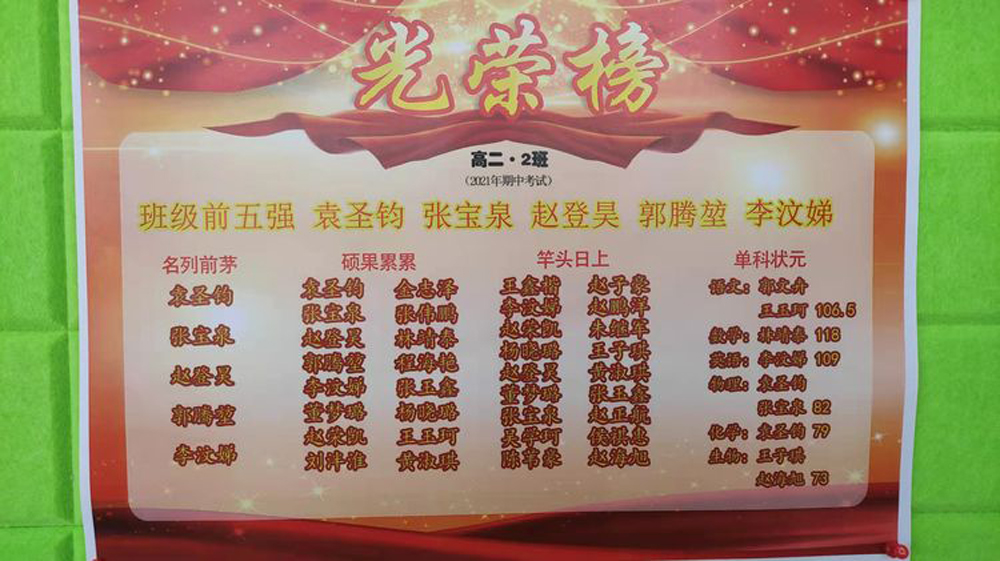 光荣榜
高二·2班
（2021年期中考试）
班级前五强 袁圣钧 张宝泉 赵登昊 郭腾堃 李汶娣
名列前茅
袁圣钧
张宝泉
赵登昊
郭腾堃
李汶娣
硕果累累
袁圣钧 金志泽
张宝泉 张伟鹏
赵登昊 林靖泰
郭腾堃 程海艳
李汶娣 张玉鑫
董梦璐 杨晓璐
赵荣凯 王玉珂
刘沣淮 黄淑琪
竿头日上
王鑫楷 赵子豪
李汶娣 赵鹏洋
赵荣凯 朱继军
杨晓璐 王子琪
赵登昊 黄淑琪
董梦璐 张玉鑫
张宝泉 赵正航
吴学珂 侯祺惠
陈苇豪 赵海旭
单科状元
语文：郭文卉
王玉珂 106.5
数学：林靖泰 118
英语：李汶娣 109
物理：袁圣钧
张宝泉 82
化学：袁圣钧 79
生物：王子琪
赵海旭 73